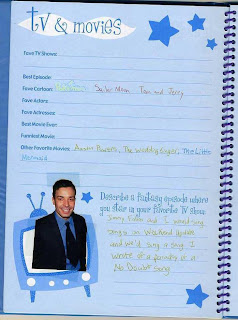 tv & movies
Fave TV Shows:
Best Episode:
Fave Cartoon: Sailor Moon, Tom and Jerry
Fave Actors:
Fave Actresses:
Best Movie Ever:
Funniest Movie:
Other Favorite Movies: Austin Powers, The Wedding Singer, The Little
Mermaid
Describe a fantasy episode where
you star in your favorite TV show:
Jimmy Fallon and I would
sing on Weekend Update
and we'd sing a song I
wrote of a parody of a
No Doubt song